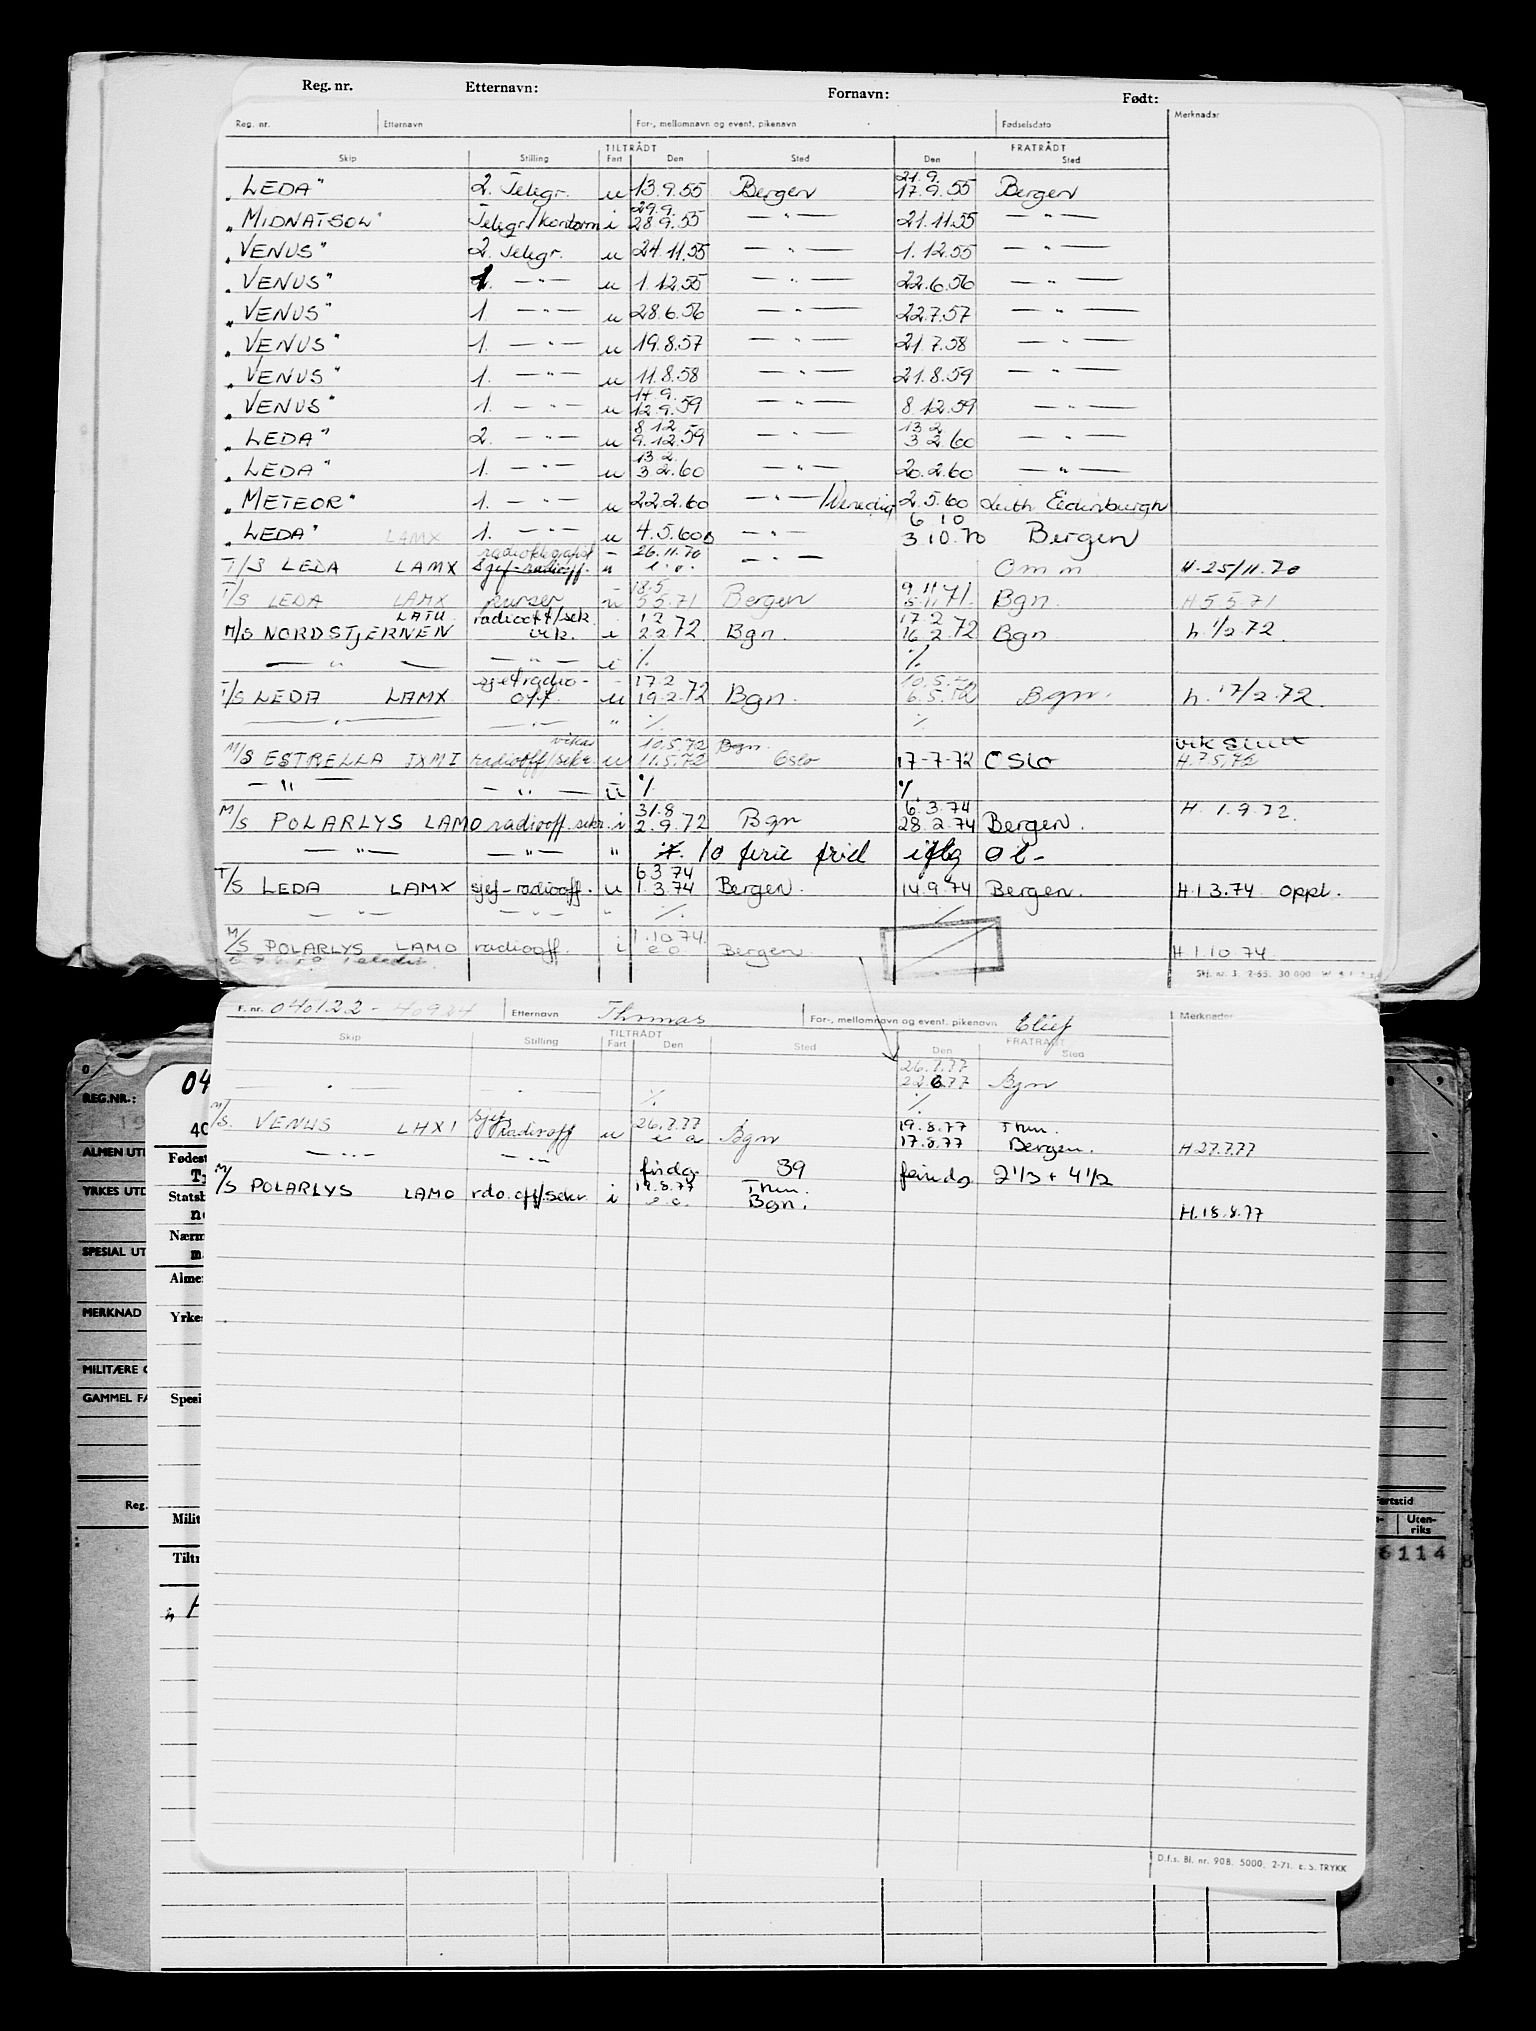 Reg. nr. Etternavn: Fornavn: Født:
Reg. nr. Etternavn For-, mellomnavn og event. pikenavn Fødselsdato Merknader
TILTRÅDT FRATRÅDT
Skip Stilling Fart Den Sted Den Sted
21.9.
„LEDA" 2. Telegr. u 13.9.55 Bergen 17.9.55 Bergen
29.9.
„MIDNATSOL" Telegr/kontorm i 28.9.55 — " — 21.11.55 — " —
„VENUS" 2. Telegr. u 24.11.55 — " — 1.12.55 — " —
„VENUS" 1. — " — u 1.12.55 — " — 22.6.56 — " —
„VENUS" 1. — " — u 28.6.56 — " — 22.7.57 — " —
„VENUS" 1. — " — u 19.8.57 — " — 21.7.58 — " —
„VENUS" 1. — " — u 11.8.58 — " — 21.8.59 — " —
14.9.
„VENUS" 1. — " — u 12.9.59 — " — 8.12.59 — " —
8.12 13.2
„LEDA" 2. — " — u 9.12.59 — " — 3.2.60 — " —
13.2.
„LEDA" 1. — " — u 3.2.60 — " — 20.2.60 — " —
„METEOR" 1. — " — u 22.2.60 — " — /Venedig 2.5.60 Leith Edinburgh
6 10
„LEDA" LAMX 1. — " — u 4.5.60 — " — 3.10.70 Bergen
radiotelegrafist - 26.11.70
T/S LEDA LAMX sjef-radiooff. u e.o. — " — Omm H.25/11.70
18.5 9 11
T/S LEDA LAMX purser u 5.5.71 Bergen 5.11.71. Bgn. H 5.5.71
LATU radiooff/sek. 1 2 17.2
M/S NORDSTJERNEN vik. i 2.2.72. Bgn. 16.2.72 Bgn h. 1/2.72.
— " — — " — i % %
sjefradio- - 17.2 10.5.72
T/S LEDA LAMX off. u 19.2.72 Bgn. 6.5.72 Bgn. h. 17/2.72.
— " — — " — " % %
vikar 10.5.72 Bgn. vik slutt
M/S ESTRELLA JXMI radiooff/sekr u 11.5.72 Oslo 17-7-72 OSLO H.7.5.72
— " — — " — u % %
31.8 6.3.74
M/S POLARLYS LAMO radiooff.sekr. i 2.9.72 Bgn 28.2.74 Bergen. H. 1.9.72.
— " — — " — " 10 ferie frid iflg
6 3 74
T/S LEDA LAMX sjef-radiooff. u 1.3.74 Bergen. 14.9.74 Bergen. H.1 3.74 oppl.
— " — — " — " % %
1.10.74.
M/S POLARLYS LAMO radiooff. i e.o. Bergen H 1.10.74.
Skj. nr. 3. 2-65. 30 000.
F. nr. 040122 - 40984 Etternavn Thomas For-, mellomnavn og event. pikenavn Merknader
TILTRÅDT FRATRÅDT
Skip Stilling Fart Den Sted Den Sted
26.7.77
— " — — " — % 22.6.77 Bgn
%
sjef- 26.7.77 19.8.77 Thm.
M/S. VENUS LHXI radiooff u e o Bgn 17.8.77 Bergen. H.27.7.77
— " — — " —
fridg. 39 feriedg 2 1/3 + 4 1/2
19.8.77 Thm.
M/S POLARLYS LAMO rdo.off/sekr i e.o. Bgn. H.18.8.77
04
REG.NR.:
ALMEN UT
Fødest
YRKES UTD
Statsb
Nærm
SPESIAL UT
Alme
MERKNAD
Yrkes
MILITÆRE
GAMMEL FA
Spesi
Reg.
Milit
Tiltr
Fartstid
Uten-
riks
6114
D.f.s. Bl. nr. 90B. 5000. 2-71. E. S. TRYKK